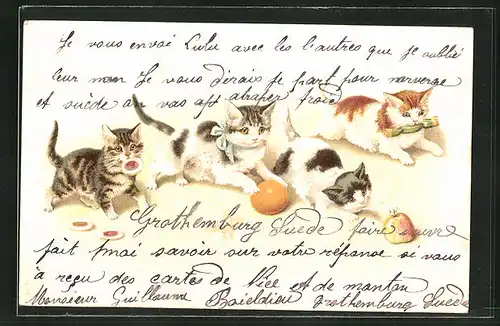 Je vous envoi Lulu avec les l'autres que je oublié
leur nom Je vous dérais je part pour norverge
et suède on vas atraper froid
Grothemburg Suede faire suivre
fait moi savoir sur votre réponse si vous
à reçu des cartes de Nice et de manton
Monsieur Guillaume Boieldieu Grothemburg Suede